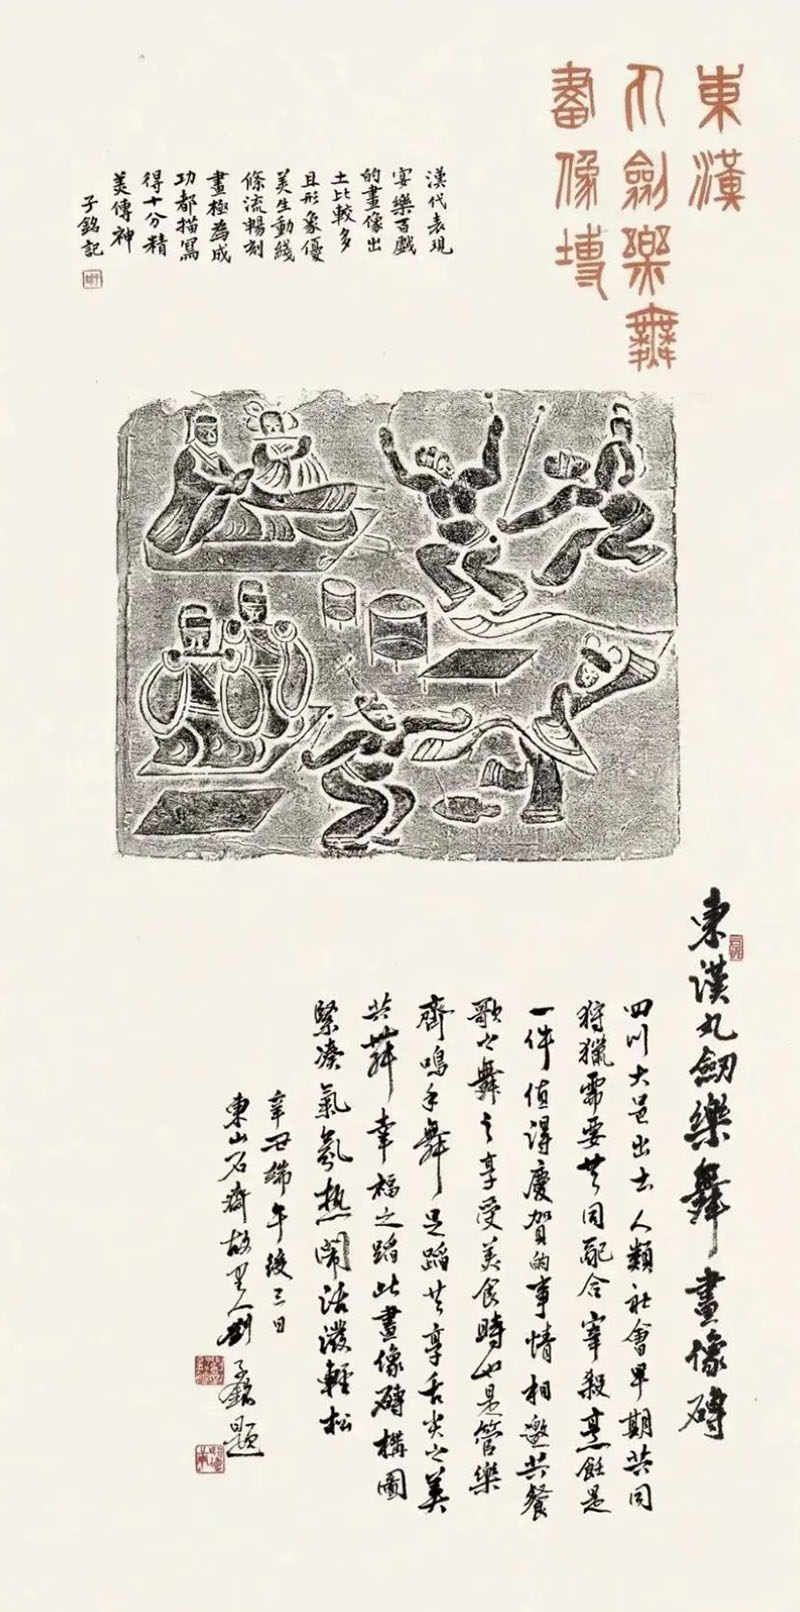 東漢
丸劍樂舞
畫像塼
漢代表現
宴樂百戲
的畫像出
土比較多
且形象優
美生動綫
條流暢刻
畫極為成
功都描寫
得十分精
美傳神
子銘記
東漢丸劒樂舞畫像磚
四川大邑出土人類社會早期共同
狩獵需要共同配合宰殺烹飪是
一件值得慶賀的事情相邀共餐
歌之舞之享受美食時也是管樂
齊鳴手舞足蹈共享舌尖之美
共舞幸福之蹈此畫像磚構圖
緊湊氣氛熱鬧活潑輕松
辛丑端午後三日
東山石齋故里人劉子銘題